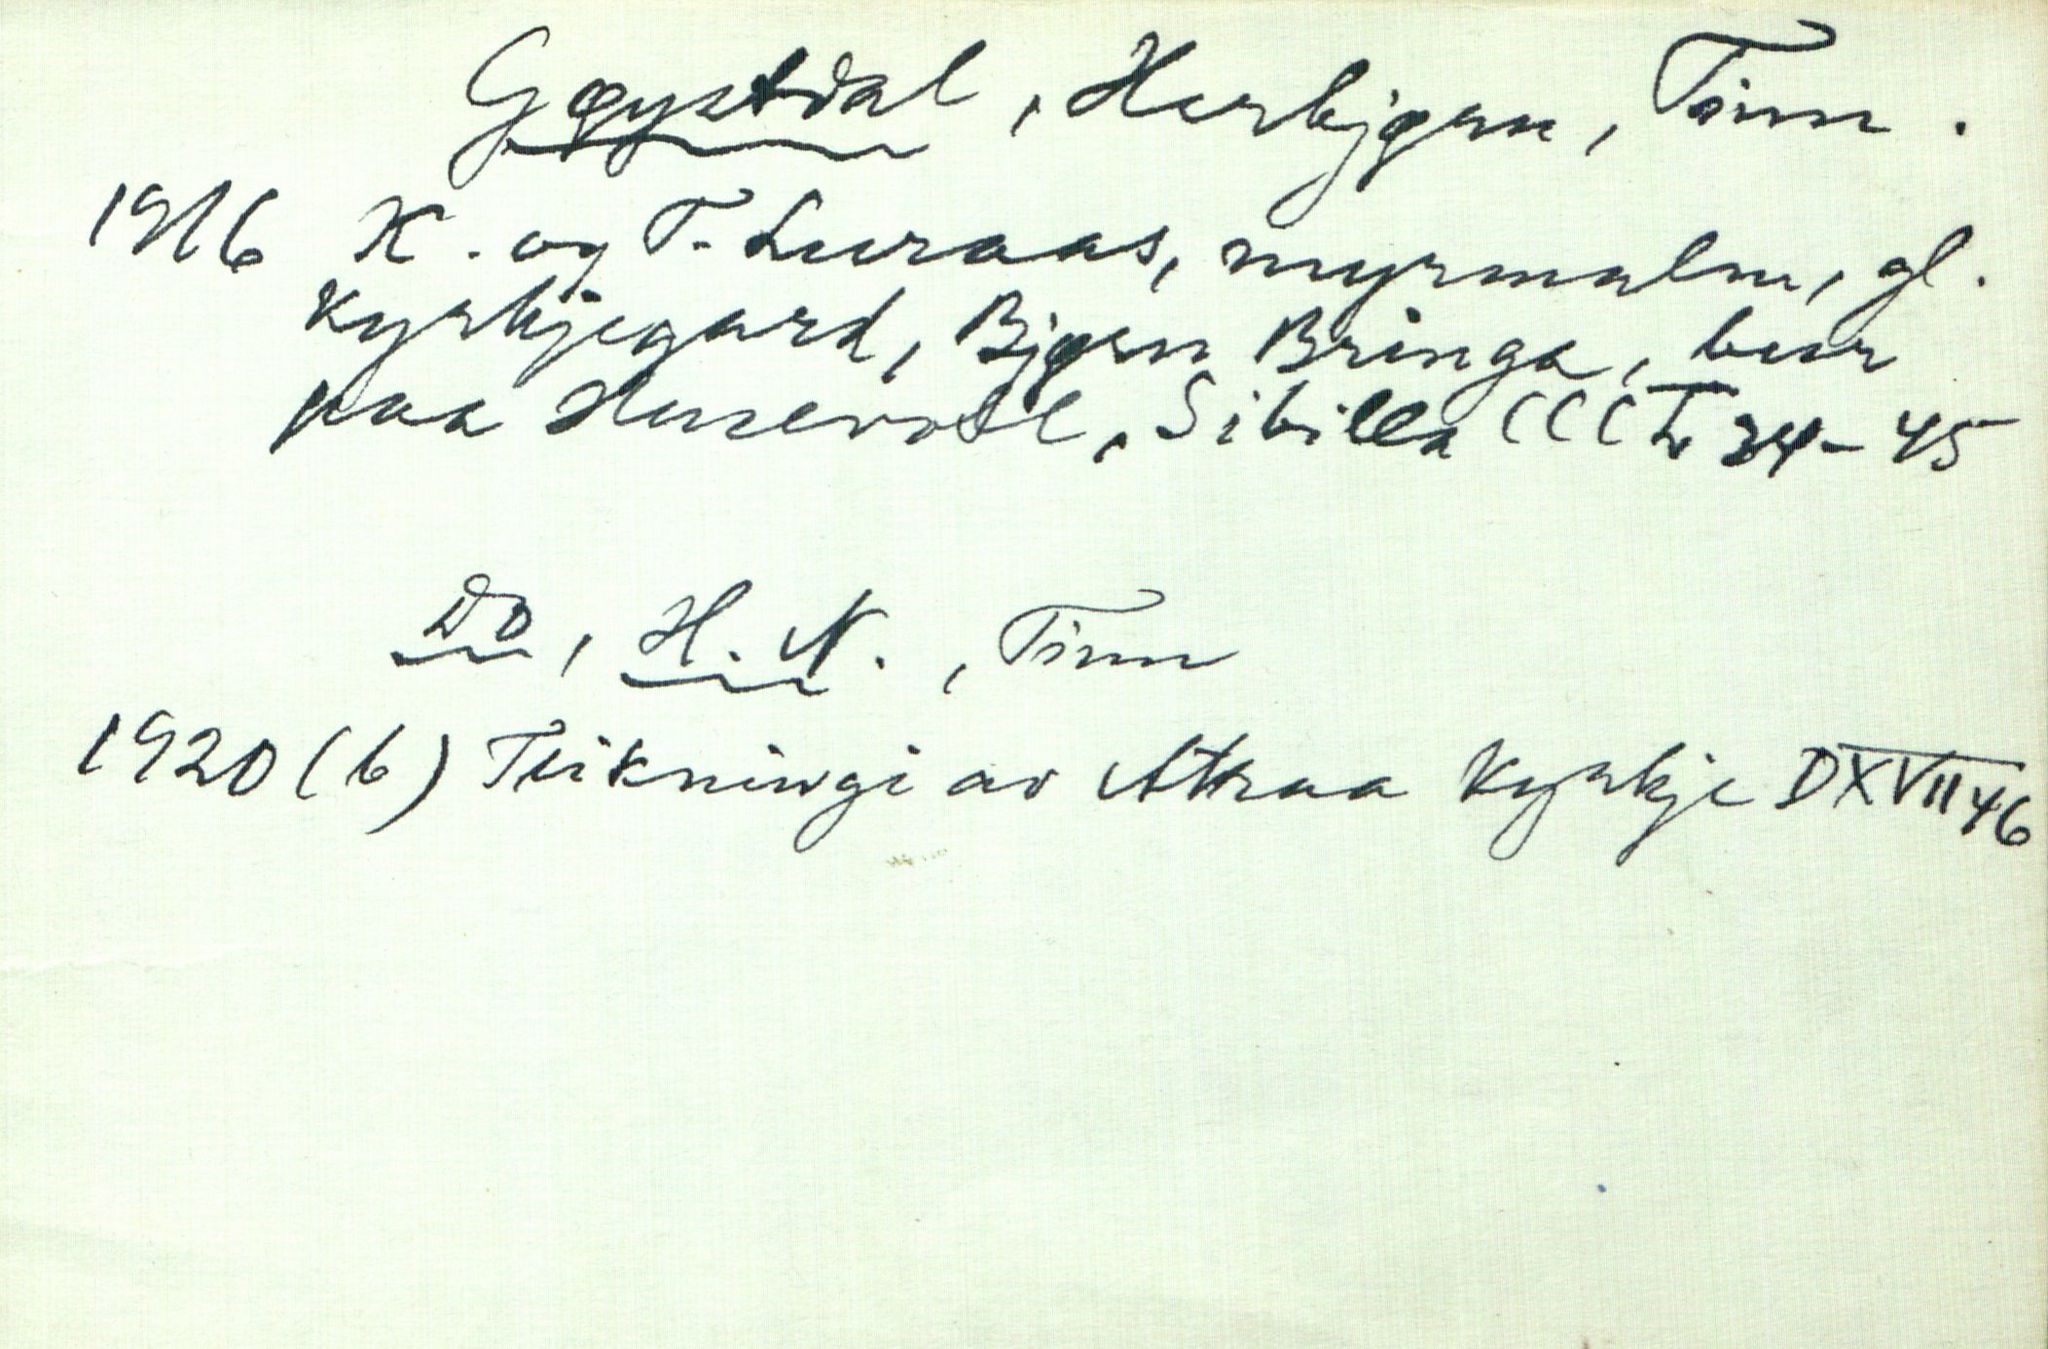 Gøystdal, Herbjørn, Tinn.
1916 K. og T. Luraas, myrmalm, gl.
Kyrkjegard, Bjørn Bringa, bur
paa Husevoll, Sibilla CCCL 34-45
Do, H. N., Tinn
1920 (b) Teikningi av Attraa Kyrkje DXVII 46